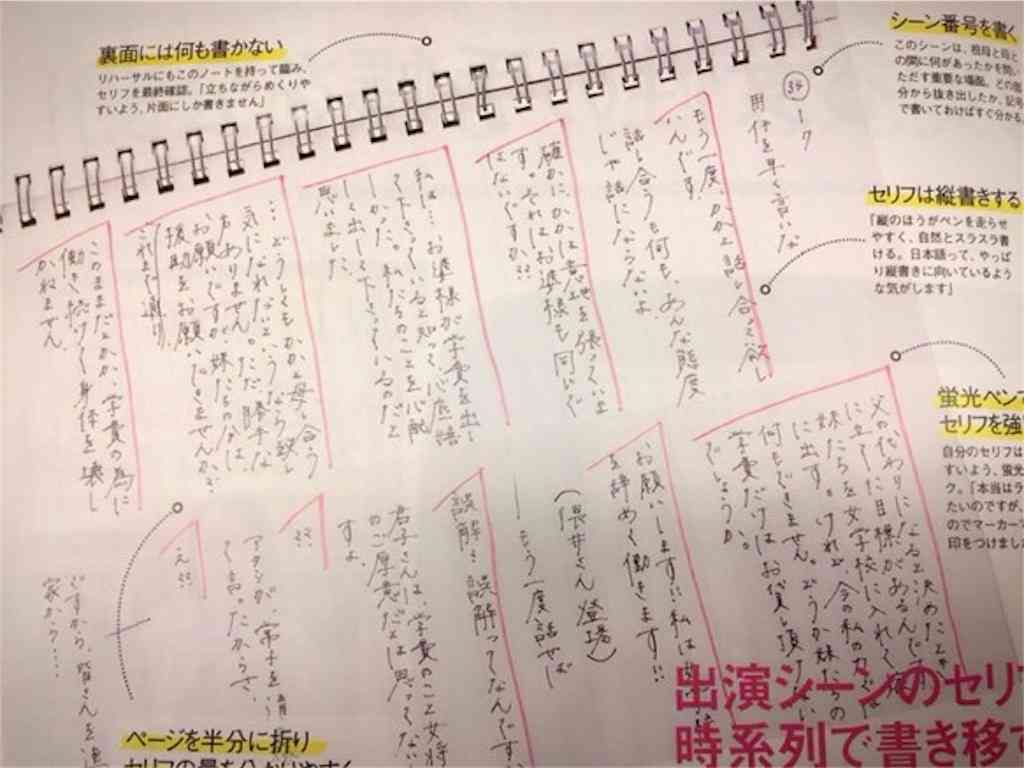 裏面には何も書かない
リハーサルにもこのノートを持って臨み、
セリフを最終確認。「立ちながらめくりや
すいよう、片面にしか書きません」
シーン番号を書く
このシーンは、祖母と母と
の間に何があったかを問い
ただす重要な場面。どの
分から抜き出したか、記号
で書いておけばすぐ分かる
セリフは縦書きする
「縦のほうがペンを走らせ
やすく、自然とスラスラ書
ける。日本語って、やっぱ
り縦書きに向いているよう
な気がします」
蛍光ペンで
セリフを強
自分のセリフは
すいよう、蛍光
ク。「本当はラ
たいのですが、
のでマーカーで
印をつけました
34
用件を早く言いな
もう一度、かかと話し合って欲し
いんです
話し合うも何も、あんな態度
じゃ話にならないよ
確かに、かかは意地を張っていま
す。それはお婆様も同じで
はないですか?
私は…お婆様が学費を出し
て下さっていると知って、心底嬉
しかった。私たちのことを心配
して出して下さっているのだと
思いました
…どうしてもかかと母と会う
気になれないというなら致し
方ありません。ただ、勝手な
お願いですが、妹たちの分は、
援助をお願いできませんか。
これまで通り
このままだとかか、学費の為に
働き続けて身体を壊し
かねません
父の代わりになると決めたとき
に立てた目標があるんです
妹たちを女学校に入れて、嫁
に出す。けれど、今の私の力では
何もできません。どうか妹たちの
学費だけはお貸し頂けない
でしょうか
お願いします!!私は
を辞めて働きます!!
登場)
もう一度話せば
誤解も
誤解ってなんです
君子さんは、学費のこと女将
のご厚意だとは思ってない
すよ
!?
アタシが、常子をいい
て言ったからさ
え!?
ですから、皆さんを
家から…
ページを半分に折り
出演シーンのセリ
時系列で書き移す